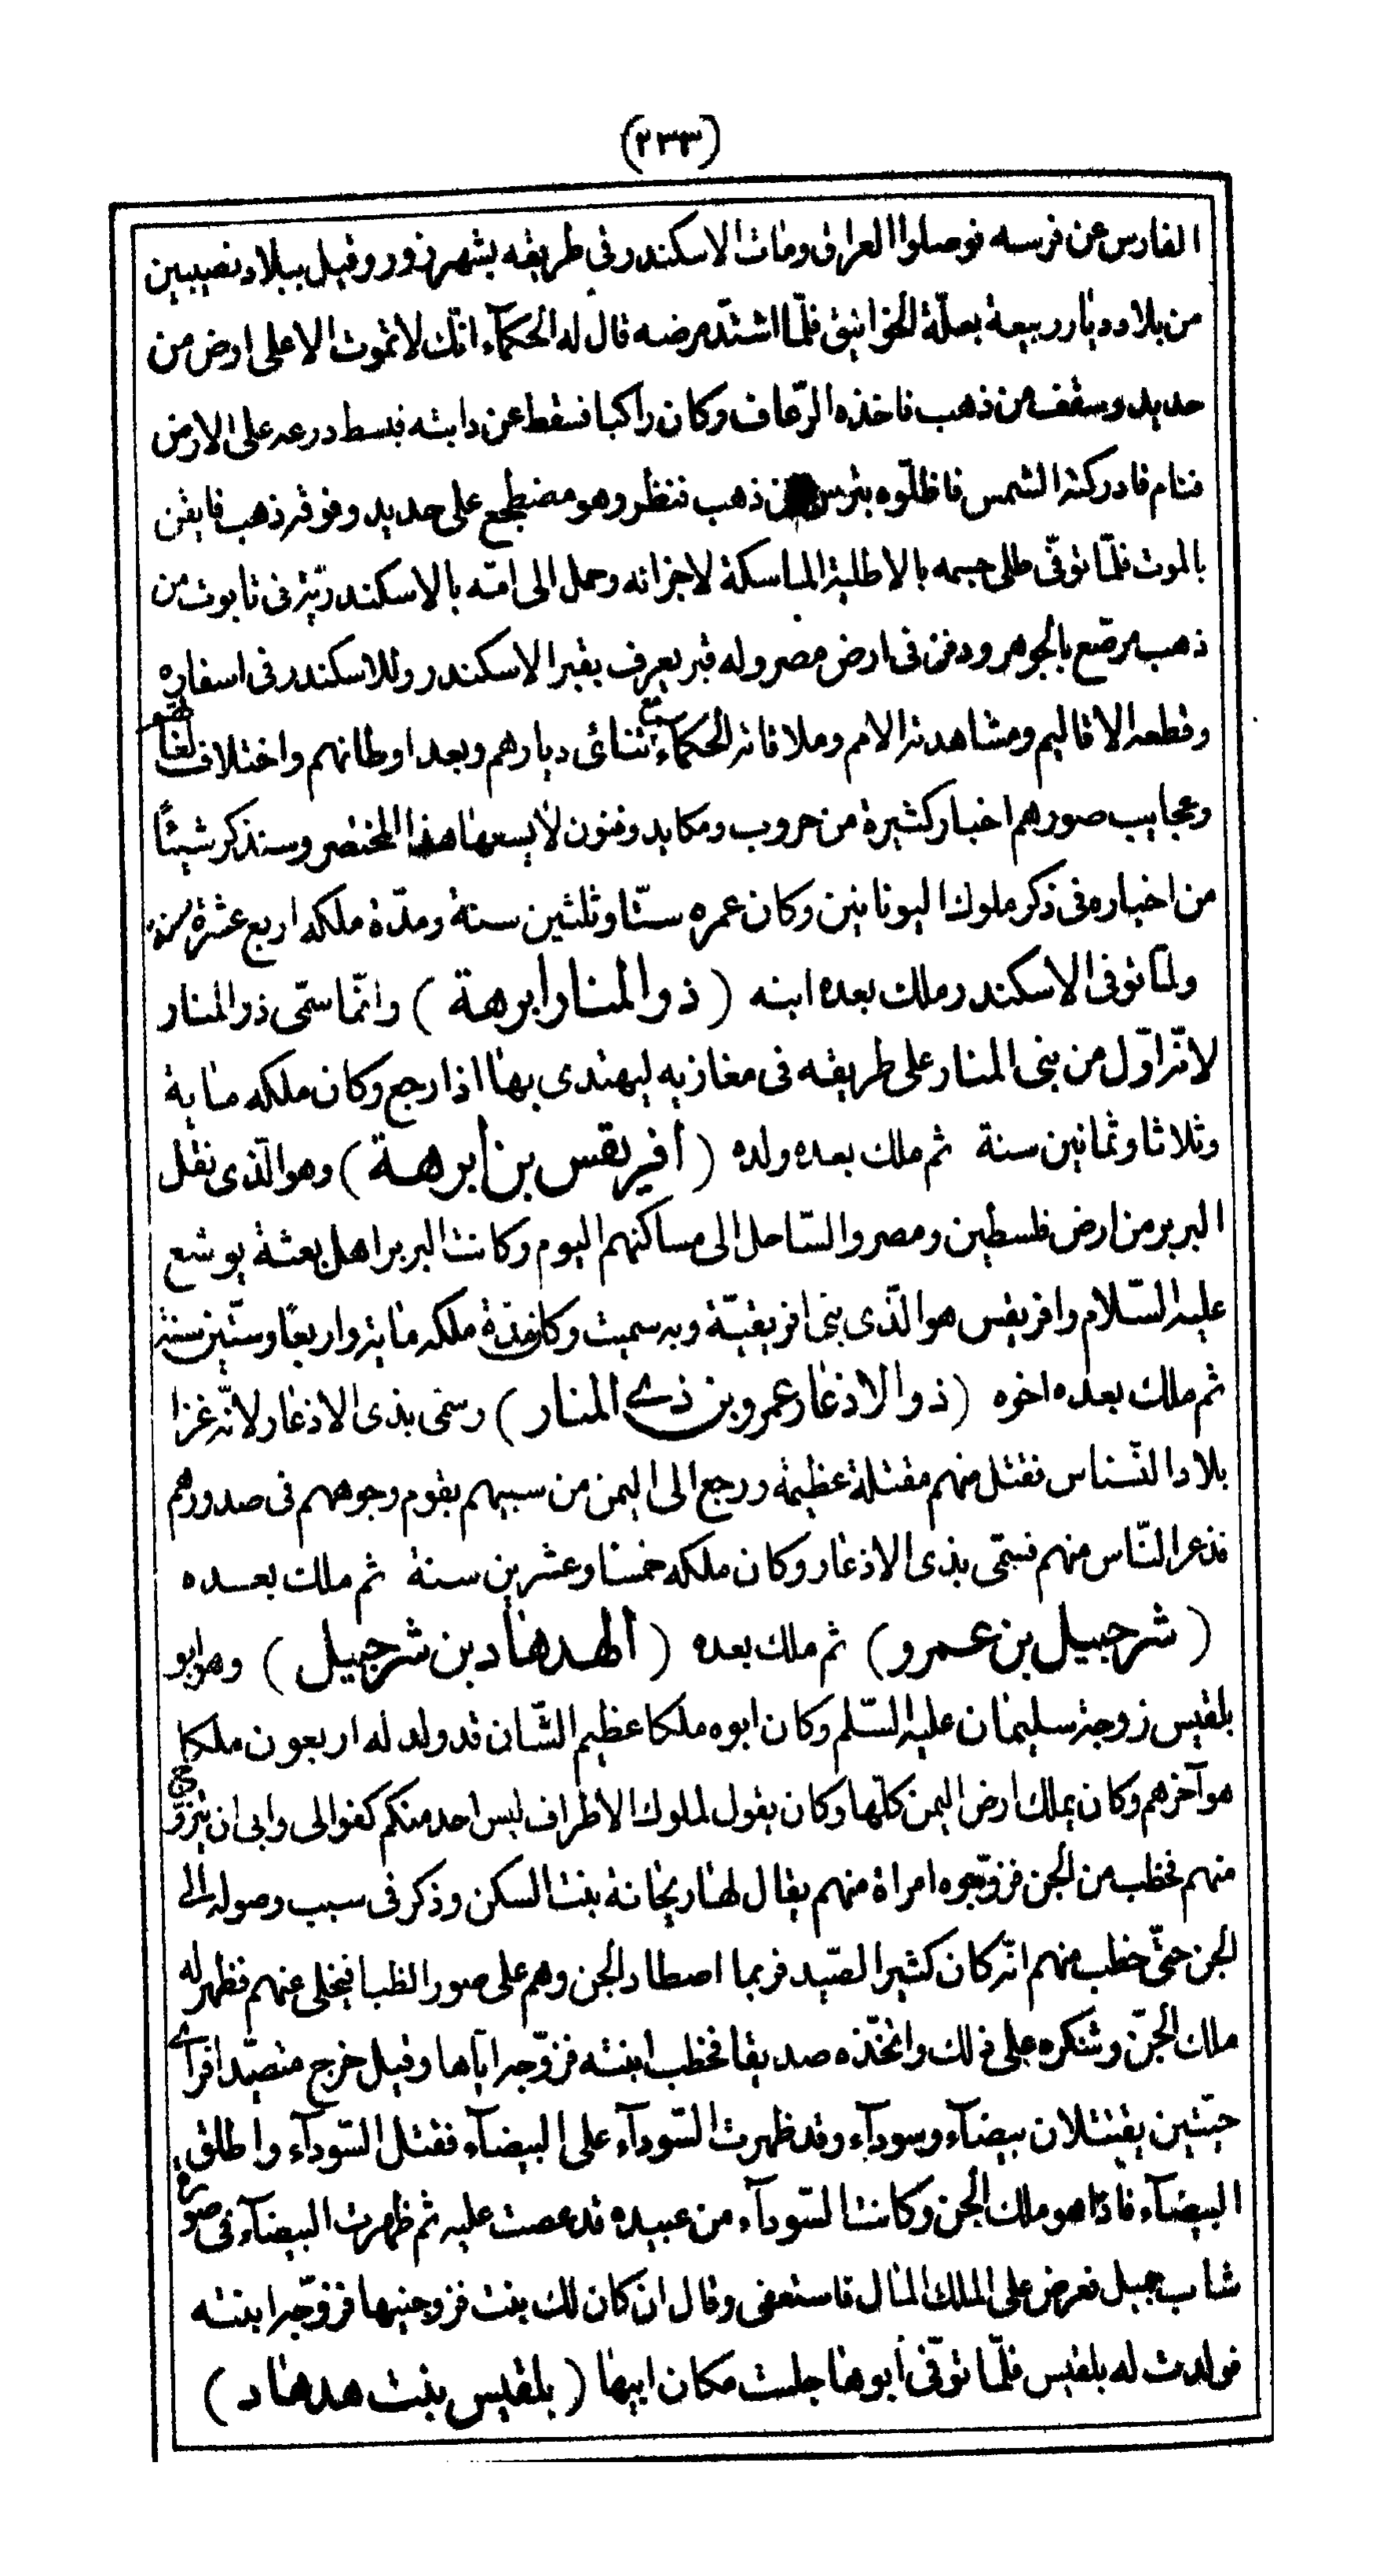 (٢٣٣)
الفارس عن فرسه فوصلوا العراق ومات الاسكندر في طريقه بشهرزور وقيل ببلاد نصيبين
من بلاد ديار ربيعة بعلّة الخوانيق فلمّا اشتدّ مرضه قال له الحكمآء انّك لا تموت الا على ارض من
حديد وسقف من ذهب فاخذه الرّعاف وكان راكبا فسقط عن دابته فبسط درعه على الارض
فنام فادركته الشمس فاظلّوه بترس من ذهب فنظر وهو مضطجع على حديد وفوقه ذهب فايقن
بالموت فلمّا توفّى طلى جسمه بالاطلية الماسكة لاجزائه وحمل الى امّه بالاسكندريّة فى تابوت من
ذهب مرصّع بالجوهر ودفن فى ارض مصر وله قبر يعرف بقبر الاسكندر وللاسكندر فى اسفاره
وقطعه الاقاليم ومشاهدته الامم وملاقاته الحكماء مع تنائى ديارهم وبعد اوطانهم واختلاف لغاتهم
وعجايب صورهم اخبار كثيرة من حروب ومكايد وفنون لا يسعها هذا المختصر وسنذكر شيئًا
من اخباره فى ذكر ملوك اليونانيين وكان عمره ستّا وثلثين سنة ومدّة ملكه اربع عشرة سنة
ولمّا توفى الاسكندر ملك بعده ابنه ( ذو المنار ابرهة ) وانّما سمّى ذو المنار
لانّه اوّل من بنى المنار على طريقه فى مغازيه ليهتدى بها اذا رجع وكان ملكه ماية
وثلاثا وثمانين سنة ثم ملك بعده ولده ( أفريقس بن أبرهة ) وهو الّذى نقل
البربر من ارض فلسطين ومصر والسّاحل الى مساكنهم اليوم وكانت البربر اهل بعثة يوشع
عليه السّلام وافريقس هو الّذى بنى افريقيّة وبه سميت وكان مدّة ملكه ماية واربعًا وستّين سنة
ثم ملك بعده اخوه ( ذو الاذعار عمرو بن ذي المنار ) وسمّى بذى الاذعار لانّه غزا
بلاد النّسناس فقتل منهم مقتلة عظيمة ورجع الى اليمن من سبيهم بقوم وجوههم فى صدورهم
فذعر النّاس منهم فسمّى بذى الاذعار وكان ملكه خمسا وعشرين سنة ثم ملك بعده
( شرحبيل بن عمرو ) ثم ملك بعده ( الهدهاد بن شرحبيل ) وهو ابو
بلقيس زوجة سليمان عليه السّلم وكان ابوه ملكا عظيم الشّان قد ولد له اربعون ملكا
هو آخرهم وكان يملك ارض اليمن كلّها وكان يقول لملوك الاطراف ليس احد منكم كفوا لى وابى ان يتزوّج
منهم فخطب من الجن فزوّجوه امراة منهم يقال لها ريحانة بنت السكن وذكر فى سبب وصوله الى
الجن حتّى خطب منهم انّه كان كثير الصّيد فربما اصطاد الجن وهم على صور الظبا فيخلى عنهم فظهر له
ملك الجنّ وشكره على ذلك واتخّذه صديقا فخطب ابنته فزوّجه ايّاها وقيل خرج متصيّدا فرآى
حيّتين يقتتلان بيضآء وسودآء وقد ظهرت السّودآء على البيضآء فقتل السّودآء واطلق
البيضآء فاذا هو ملك الجن وكانت السّودآء من عبيده قد عصت عليه ثم ظهرت البيضآء فى صورة
شاب جميل فعرض على الملك المال فاستعفى وقال ان كان لك بنت فزوجنيها فزوّجه ابنته
فولدت له بلقيس فلمّا توفّى أبوها جلست مكان ابيها ( بلقيس بنت هدهاد )